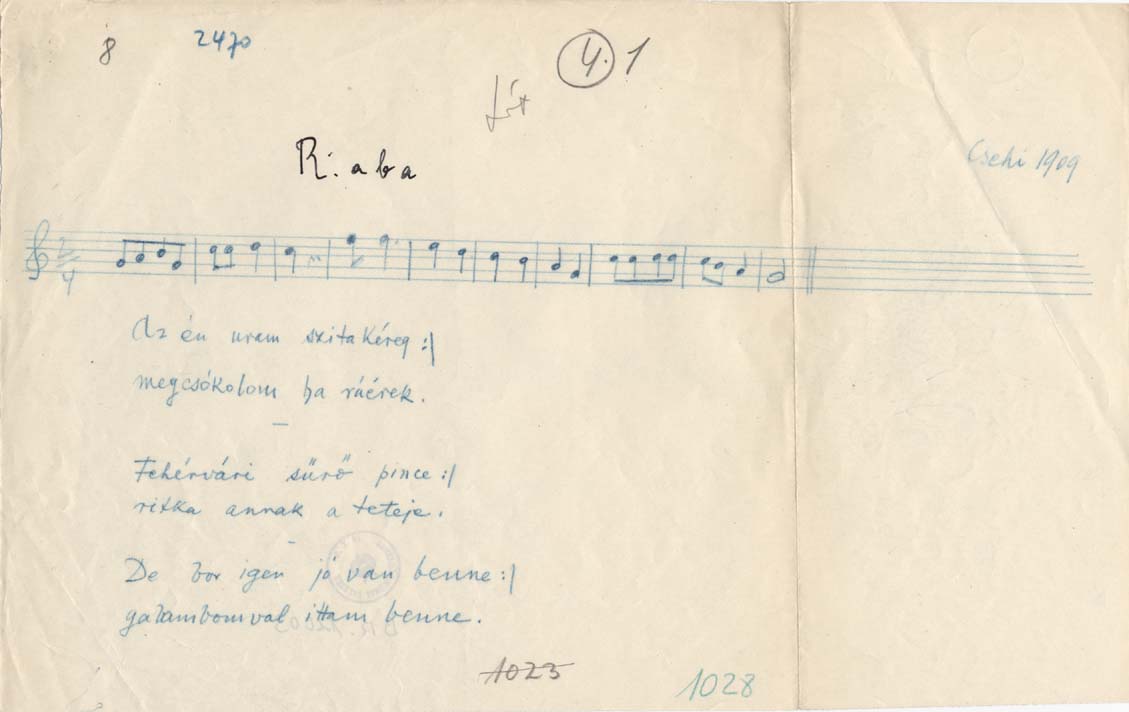 8
2470
4. 1
R. aba
Csehi 1909
2
4
Az én uram szitakéreg :|
megcsókolom ha ráérek.
Fehérvári sűrő pince :|
ritka annak a teteje.
De bor igen jó van benne :|
galambomval ittam benne.
1023
1028